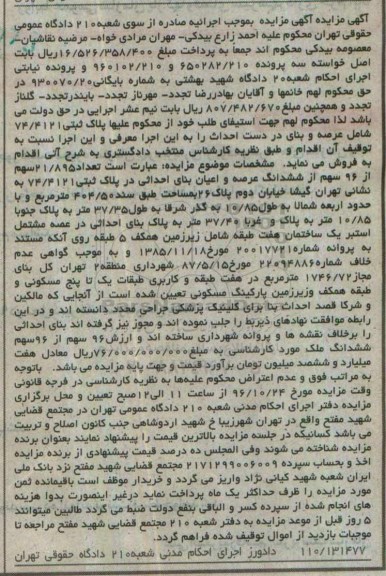 آگهی مزایده آگهی مزایده بموجب اجرائیه صادره از سوی شعبه۲۱۰ دادگاه عمومی
حقوقی تهران محکوم علیه احمد زارع بیدکی- مهران مرادی خواه- مرضیه نقاشیان-
معصومه بیدکی محکوم اند جمعاً به پرداخت مبلغ ۱۶/۵۲۶/۳۵۸/۴۰۰ریال بابت
اصل خواسته سه پرونده ۶۵۰۲۸۲/۲۱۰ و ۹۶۰۱۰۲/۲۱۰ و پرونده نیابتی
اجرای احکام شعبه۲۰ دادگاه شهید بهشتی به شماره بایگانی۹۳۰۰۷۰/۲۰ در
حق محکوم لهم خانمها و آقایان بهادررضا تجدد- مهرناز تجدد- بایندرتجدد- گلناز
تجدد و همچنین مبلغ۸۰۷/۴۸۲/۶۷۰ ریال بابت نیم عشر اجرایی در حق دولت می
باشد لذا محکوم لهم جهت استیفای طلب خود از محکوم علیها پلاک ثبتی۷۴/۴۱۲۱
شامل عرصه و بنای در دست احداث را به این اجرا معرفی و این اجرا نسبت به
توقیف آن اقدام و طبق نظریه کارشناس منتخب دادگستری به شرح آتی اقدام
به فروش می نماید. مشخصات موضوع مزایده: عبارت است تعداد۲۱/۸۹۵سهم
از ۹۶ سهم از ششدانگ عرصه و اعیان بنای احداثی در پلاک ثبتی۷۴/۴۱۲۱ به
نشانی تهران گیشا خیابان دوم پلاک۲۶بمساحت طبق سند۴۰۴/۵۰ مترمربع و با
حدود اربعه شمالا به طول۱۰/۸۵ به گذر شرقا به طول۳۷/۳۵ متر به پلاک جنوبا
۱۰/۸۵ متر به پلاک و غربا ۳۷/۴۰ متر به پلاک بنای احداثی در عصه مشتمل
استبر یک ساختمان هفت طبقه شامل زیرزمین همکف ۵ طبقه روی آنکه مستند
به پروانه شماره۲۰۰۱۷۷۲۱ مورخ۱۳۸۵/۱۱/۱۸ و به موجب گواهی عدم
خلاف شماره۲۲۰۹۴۸۸۶ مورخ۸۷/۵/۱۵ شهرداری منطقه۲ تهران کل بنای
مجاز۱۷۴۶/۷۲ مترمربع در هفت طبقه و کاربری طبقات یک تا پنج مسکونی و
طبقه همکف وزیرزمین پارکینگ مسکونی تعیین شده است از آنجایی که مالکین
و شرکا قصد احداث بنا برای کلینیک پزشکی جراحی مجدد دانسته اند و در این
رابطه موافقت نهادهای ذیربط را جلب نموده اند و مجوز نیز گرفته اند بنای احداثی
را برخلاف نقشه ها و پروانه شهرداری ساخته اند و ارزش۹۶ سهم از ۹۶سهم
ششدانگ ملک مورد کارشناسی به مبلغ۷۶/۰۰۰/۰۰۰/۰۰۰ریال معادل هفت
میلیارد و ششصد میلیون تومان برآورد قیمت و جهت پایه مزایده می باشد. باتوجه
به مراتب فوق و عدم اعتراض محکوم علیه‌ها به نظریه کارشناسی در فرجه قانونی
وقت مزایده مورخ ۹۶/۱۰/۲۴ از ساعت ۱۱ الی۱۲صبح تعیین و محل برگزاری
مزایده دفتر اجرای احکام مدنی شعبه ۲۱۰ دادگاه عمومی تهران در مجتمع قضایی
شهید مفتح واقع در تهران شهرزیبا خ شهید اردوشاهی جنب کانون اصلاح و تربیت
می باشد کسانیکه در جلسه مزایده بالاترین قیمت را پیشنهاد نمایند بعنوان برنده
مزایده شناخته می شوند وفی المجلس ده درصد قیمت پیشنهادی از برنده مزایده
اخذ و بحساب سپرده ۲۱۷۱۲۹۹۰۰۶۰۰۹ مجتمع قضایی شهید مفتح نزد بانک ملی
ایران شعبه شهید کیانی نژاد واریز می گردد و خریدار موظف است باقیمانده ثمن
مورد مزایده را ظرف حداکثر یک ماه پرداخت نماید درغیر اینصورت بدوا هزینه
های انجام شده از سپرده کسر و الباقی بنفع دولت ضبط می گردد طالبین میتوانند
۵ روز قبل از موعد مزایده به دفتر شعبه ۲۱۰ مجتمع قضایی شهید مفتح مراجعه تا
موجبات بازدید از اموال توقیف شده فراهم گردد.
۱۱۰/۱۳۱۴۷۷ دادورز اجرای احکام مدنی شعبه۲۱۰ دادگاه حقوقی تهران